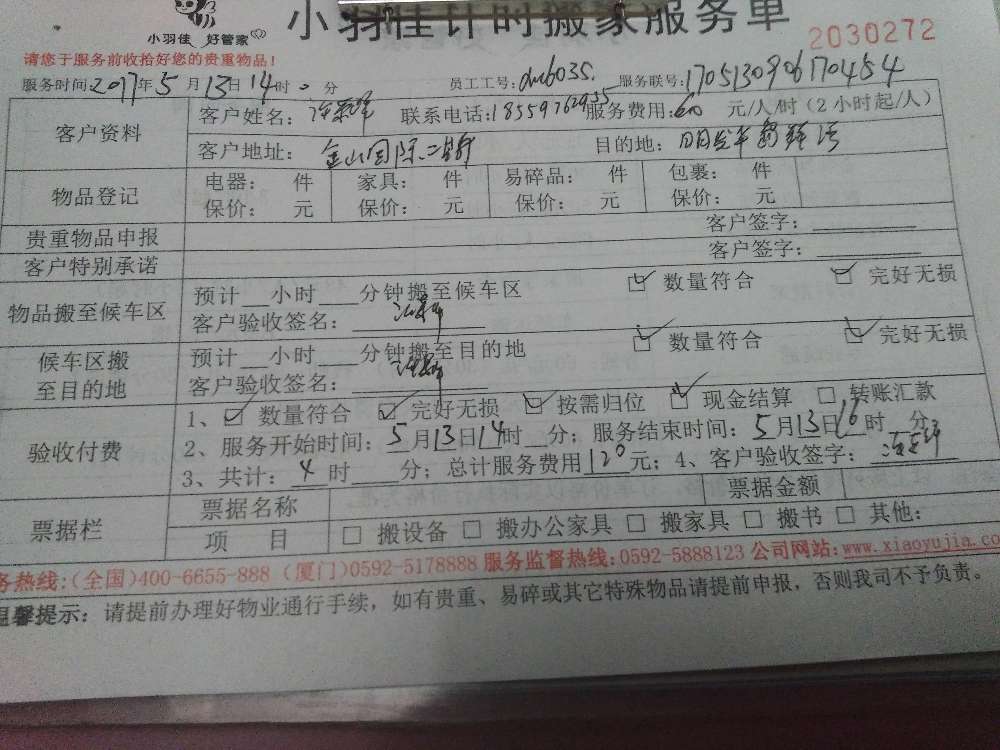 小羽佳计时搬家服务单
小羽佳 好管家
2030272
请您于服务前收拾好您的贵重物品!
服务时间:2017年5月13日14时 分 员工工号: 服务联号:
客户资料
客户姓名: 联系电话: 服务费用:60 元/人/时(2小时起/人)
客户地址: 金山国际 目的地:
物品登记
电器: 件 家具: 件 易碎品: 件 包裹: 件
保价: 元 保价: 元 保价: 元 保价: 元
贵重物品申报 客户签字:
客户特别承诺 客户签字:
物品搬至候车区
预计__小时___分钟搬至候车区 数量符合 完好无损
客户验收签名:
候车区搬至目的地
预计__小时___分钟搬至目的地 数量符合 完好无损
客户验收签名:
验收付费
1、 数量符合 完好无损 按需归位 现金结算 转账汇款
2、服务开始时间:5月13日14时__分;服务结束时间:5月13日16时__分;
3、共计:4时___分;总计服务费用120元;4、客户验收签字:
票据栏
票据名称 票据金额
项 目 □ 搬设备 □ 搬办公家具 □ 搬家具 □ 搬书 □ 其他:
务热线:(全国)400-6655-888 (厦门)0592-5178888 服务监督热线:0592-5888123 公司网站:www.xiaoyujia.co
温馨提示:请提前办理好物业通行手续,如有贵重、易碎或其它特殊物品请提前申报,否则我司不予负责。